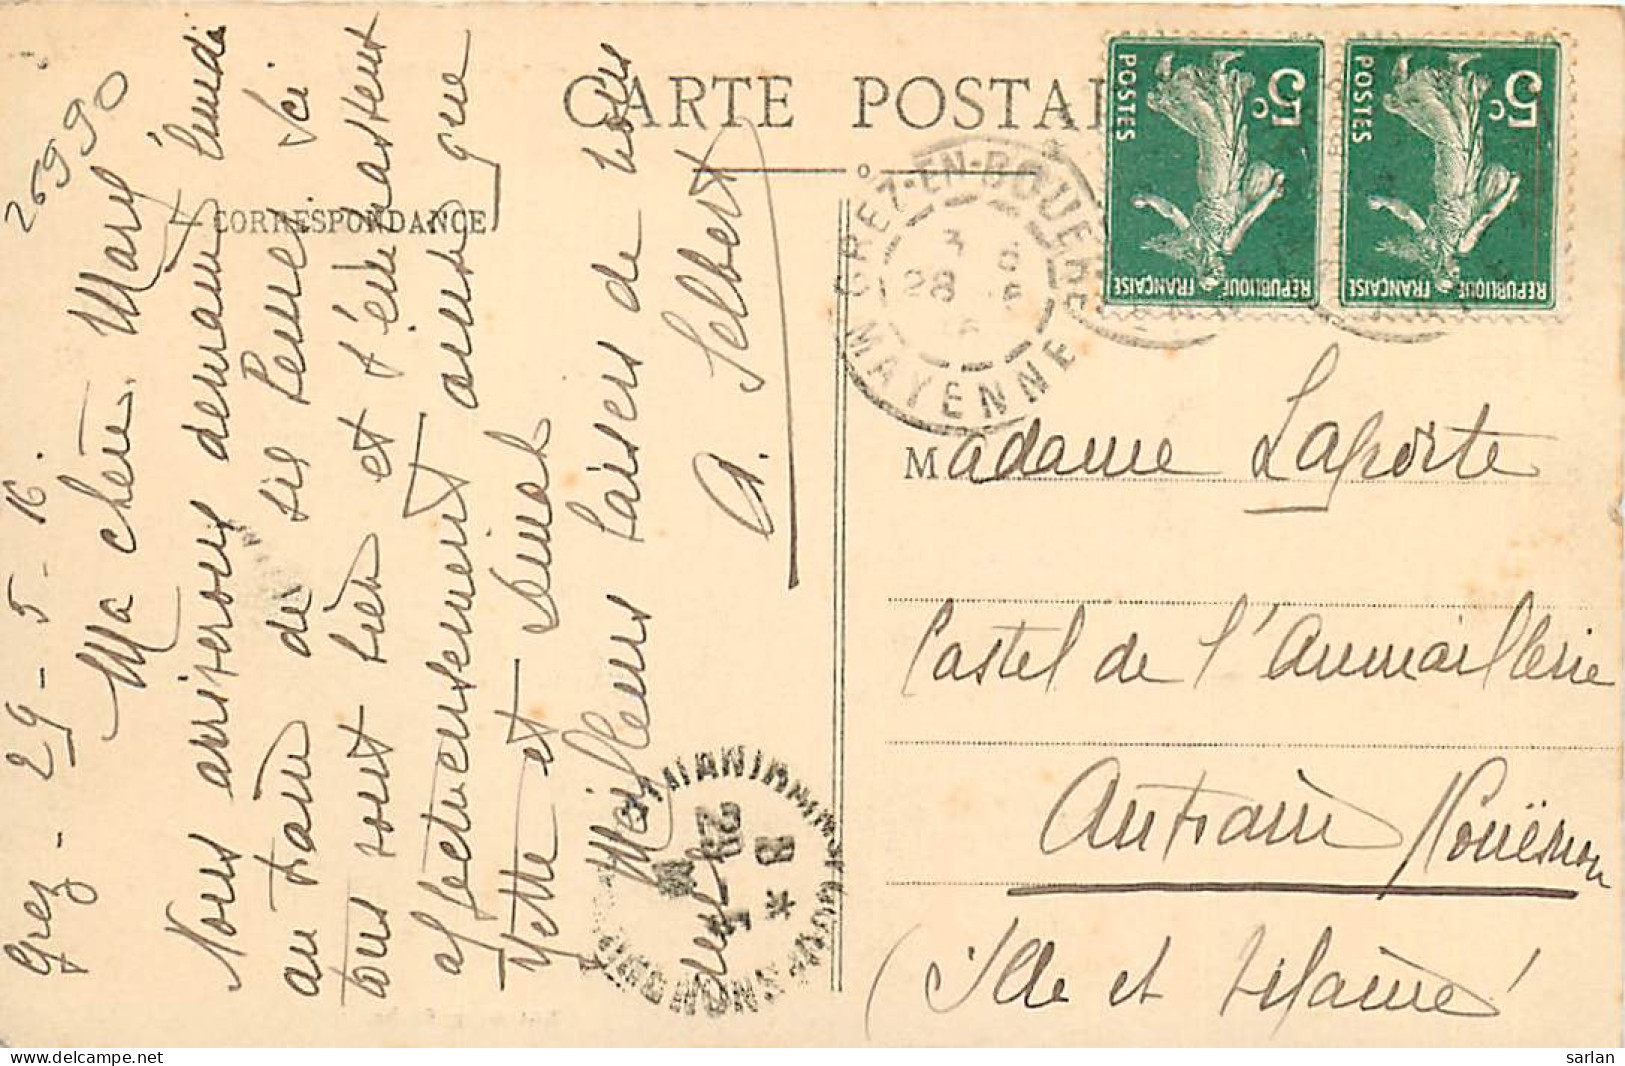 26990
Grez - 29 - 5 - 16.
Ma chère Mary
Nous arriverons demain lundi
au train de six heures. Ici
tous sont bien et t'embrassent
affectueusement ainsi que
Yette et
Meilleurs baisers de tous
deux
A. Selbert
CARTE POSTAL
CORRESPONDANCE
GREZ-EN-BOUERE
28
MAYENNE
5c
POSTES
REPUBLIQUE FRANÇAISE
5c
POSTES
REPUBLIQUE FRANÇAISE
Madame Laporte
Castel de l'Aumaillerie
Antrain s/ Couësnon
(Ille et Vilaine)
sarlan